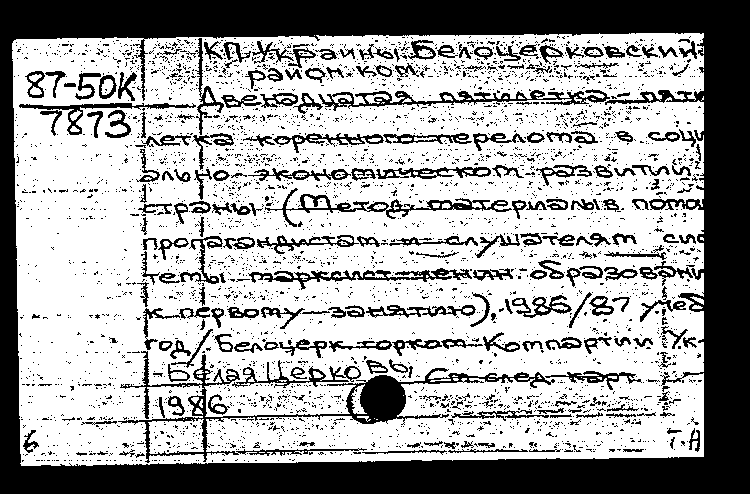 87-50К
7873
КП Украины. Белоцерковский
район. ком.
Двенадцатая пятилетка – пяти
летка коренного перелома в соци
ально-экономическом развитии
страны: (Метод. материалы в помощ
пропагандистам и слушателям сис
темы марксист.-ленин. образовани
к первому занятию), 1985/87 учеб
год/ Белоцерк. горком Компартии Ук-
- Белая Церковь, См. след. карт.
1986.
6
Т.А